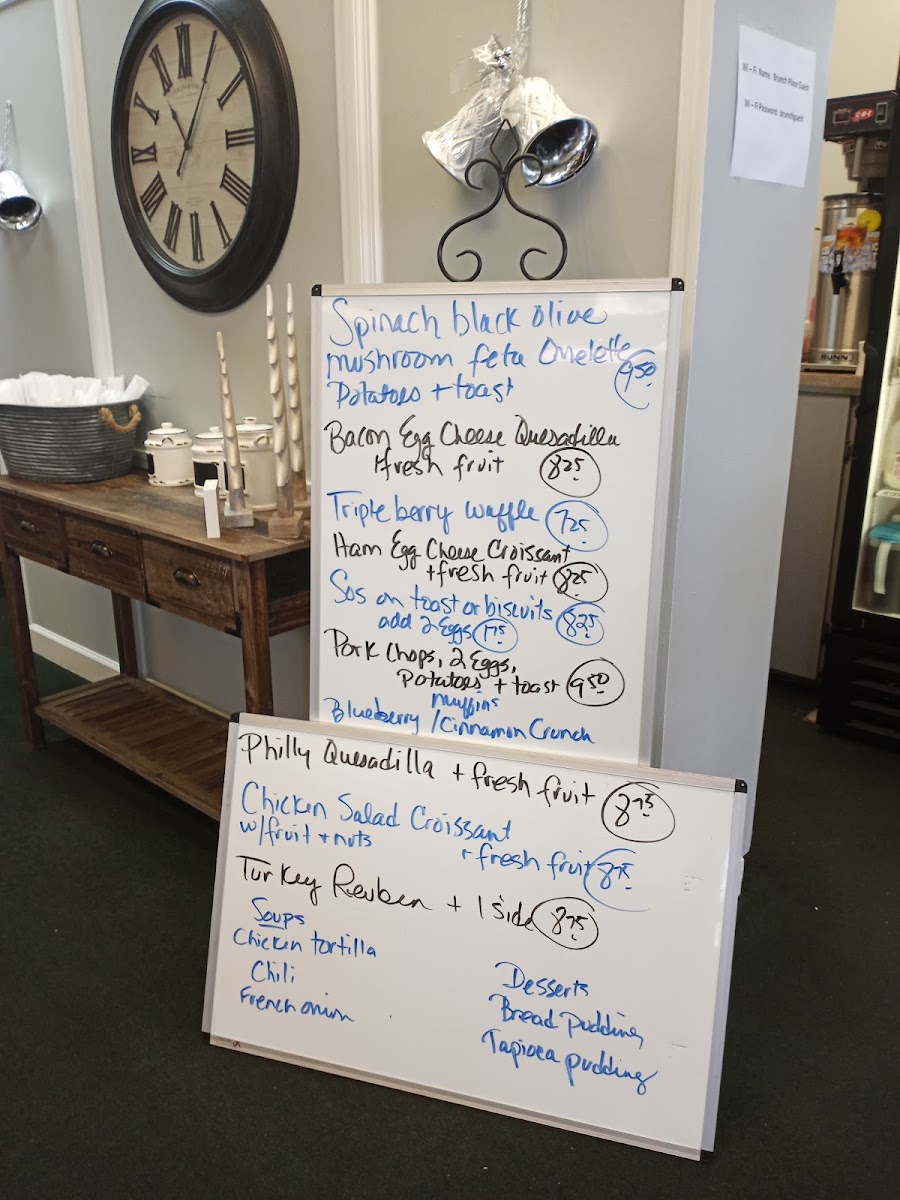 Wi-Fi Name: Brunch Place Guest
Wi-Fi Password: brunchguest
BUNN
Spinach black olive
mushroom feta Omelette
Potatoes + toast 9.50
Bacon Egg Cheese Quesadilla
+fresh fruit 8.25
Triple berry waffle 7.25
Ham Egg Cheese Croissant
+fresh fruit 8.25
Sos on toast or biscuits 8.25
add 2 Eggs 1.75
Pork Chops, 2 Eggs,
Potatoes + toast 9.50
muffins
Blueberry / Cinnamon Crunch
Philly Quesadilla + fresh fruit 8.75
Chicken Salad Croissant
w/fruit + nuts
+ fresh fruit 8.75
Turkey Reuben + 1 side 8.75
Soups
Chicken tortilla
Chili
French onion
Desserts
Bread pudding
Tapioca pudding